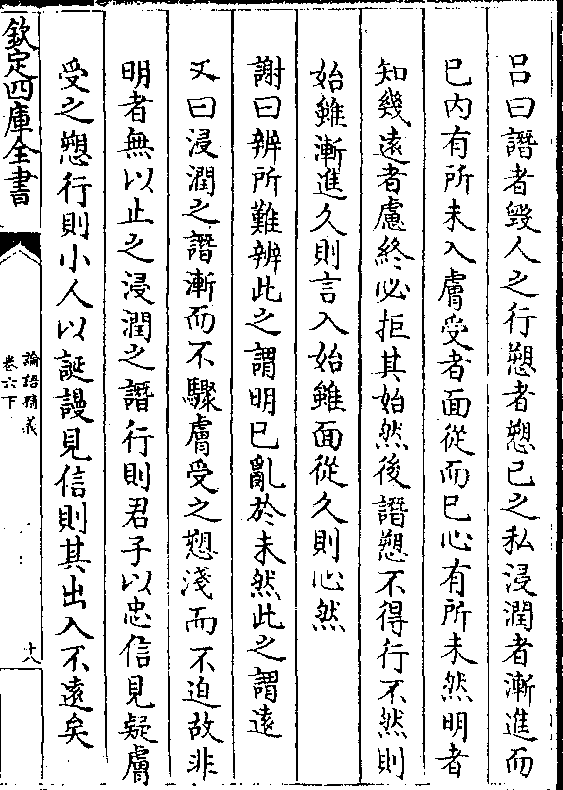 吕曰譖者毀人之行愬者愬己之私浸潤者漸進而
已内有所未入膚受者面從而已心有所未然明者
知幾遠者慮終必拒其始然後譖愬不得行不然則
始雖漸進久則言入始雖面從久則心然
謝曰辨所難辨此之謂明已亂於未然此之謂遠
又曰浸潤之譖漸而不驟膚受之愬淺而不迫故非
明者無以止之浸潤之譖行則君子以忠信見疑膚
受之愬行則小人以誕謾見信則其出入不遠矣
欽定四庫全書
論語精義
卷六下
十八